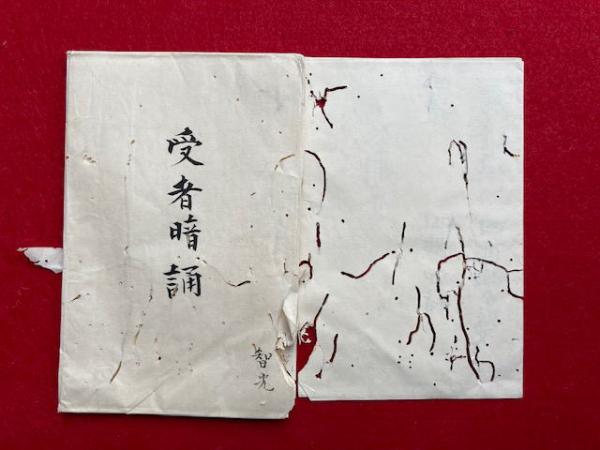 受者暗誦
智光